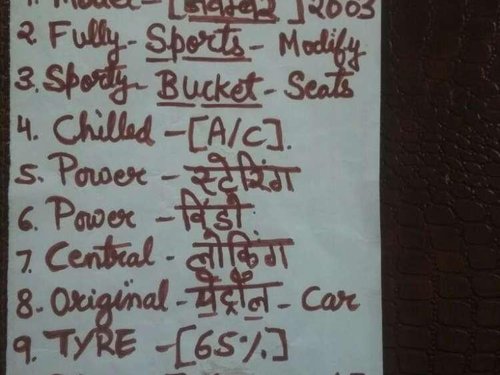 1. Model - [नवम्बर] 2003
2. Fully - Sports - Modify
3. Sporty - Bucket - Seats
4. Chilled - [A/C].
5. Power - स्टेरिंग
6. Power - विंडो
7. Central - लोकिंग
8. Original - पेट्रोल - Car
9. TYRE - [65%]